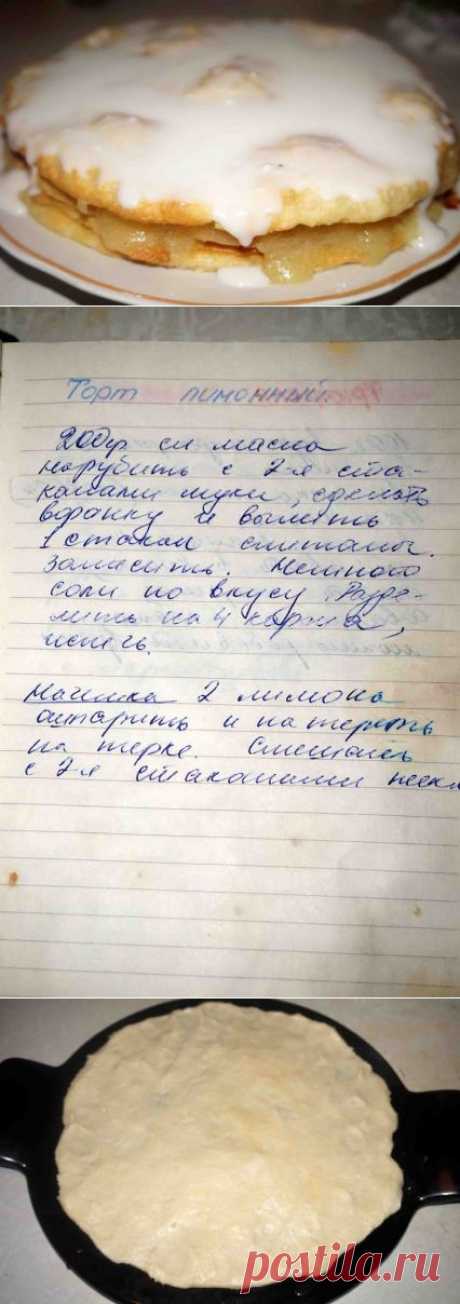 Торт лимонный
200гр сл масла
нарубить с 2-я ста-
канами муки, сделать
воронку и вылить
1 стакан сметаны.
Замесить. Немного
соли по вкусу. Разде-
лить на 4 коржа,
испечь.
Начинка 2 лимона
ошпарить и натереть
на терке. Смешать
с 2-я стаканами песка
postila.ru